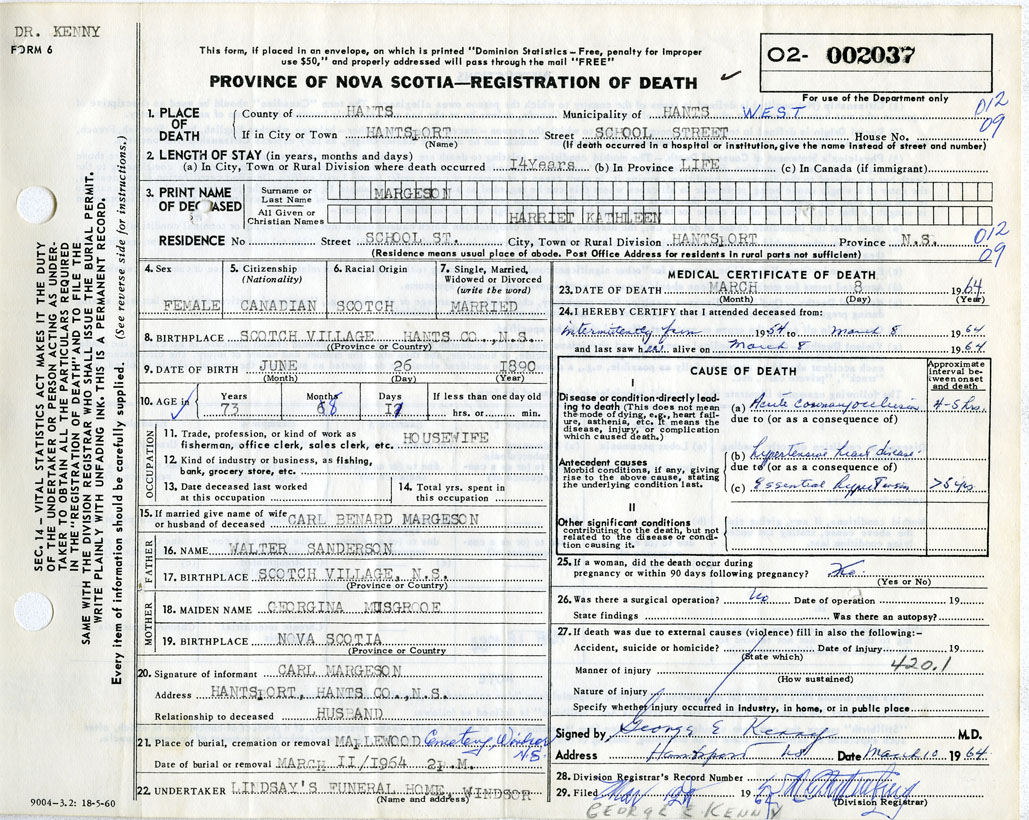 DR. KENNY
FORM 6
This form, if placed in an envelope, on which is printed "Dominion Statistics – Free, penalty for improper
use $50," and properly addressed will pass through the mail "FREE"
PROVINCE OF NOVA SCOTIA—REGISTRATION OF DEATH
O2- 002037
For use of the Department only
SEC. 14 – VITAL STATISTICS ACT MAKES IT THE DUTY
OF THE UNDERTAKER OR PERSON ACTING AS UNDER-
TAKER TO OBTAIN ALL THE PARTICULARS REQUIRED
IN THE "REGISTRATION OF DEATH" AND TO FILE THE
SAME WITH THE DIVISION REGISTRAR WHO SHALL ISSUE THE BURIAL PERMIT.
WRITE PLAINLY WITH UNFADING INK. THIS IS A PERMANENT RECORD.
Every item of information should be carefully supplied. (See reverse side for instructions.)
1. PLACE OF DEATH County of HANTS Municipality of HANTS WEST 012
If in City or Town HANTSPORT Street SCHOOL STREET House No. 09
(Name) (If death occurred in a hospital or institution, give the name instead of street and number)
2. LENGTH OF STAY (in years, months and days)
(a) In City, Town or Rural Division where death occurred 14Years (b) In Province LIFE (c) In Canada (if immigrant)
3. PRINT NAME OF DECEASED Surname or Last Name MARGESON
All Given or Christian Names HARRIET KATHLEEN
RESIDENCE No Street SCHOOL ST. City, Town or Rural Division HANTSPORT Province N.S. 012
(Residence means usual place of abode. Post Office Address for residents in rural parts not sufficient) 09
4. Sex FEMALE
5. Citizenship (Nationality) CANADIAN
6. Racial Origin SCOTCH
7. Single, Married, Widowed or Divorced (write the word) MARRIED
8. BIRTHPLACE SCOTCH VILLAGE HANTS CO., N.S.
(Province or Country)
9. DATE OF BIRTH JUNE 26 1890
(Month) (Day) (Year)
10. AGE in Years Months Days If less than one day old
73 8 hrs. or min.
OCCUPATION
11. Trade, profession, or kind of work as
fisherman, office clerk, sales clerk, etc. HOUSEWIFE
12. Kind of industry or business, as fishing,
bank, grocery store, etc.
13. Date deceased last worked
at this occupation
14. Total yrs. spent in
this occupation
15. If married give name of wife
or husband of deceased CARL BENARD MARGESON
FATHER
16. NAME WALTER SANDERSON
17. BIRTHPLACE SCOTCH VILLAGE, N.S.
(Province or Country)
MOTHER
18. MAIDEN NAME GEORGINA MUSGROOE
19. BIRTHPLACE NOVA SCOTIA
(Province or Country
20. Signature of informant CARL MARGESON
Address HANTSPORT, HANTS CO., N.S.
Relationship to deceased HUSBAND
21. Place of burial, cremation or removal MAPLEWOOD Cemetery, Windsor N.S.
Date of burial or removal MARCH 11/1964 2P.M.
22. UNDERTAKER LINDSAY'S FUNERAL HOME, WINDSOR
(Name and address)
9004-3.2: 18-5-60
MEDICAL CERTIFICATE OF DEATH
23. DATE OF DEATH MARCH 8 1964
(Month) (Day) (Year)
24. I HEREBY CERTIFY that I attended deceased from:
intermittently from 1954 to March 8 1964
and last saw her alive on March 8 1964
CAUSE OF DEATH
Approximate interval between onset and death
I
Disease or condition directly leading to death (This does not mean
the mode of dying, e.g., heart failure, asthenia, etc. It means the
disease, injury, or complication
which caused death.)
(a) Acute coronary occlusion 4-5 hrs.
due to (or as a consequence of)
Antecedent causes
Morbid conditions, if any, giving
rise to the above cause, stating
the underlying condition last.
(b) hypertensive heart disease
due to (or as a consequence of)
(c) Essential hypertension >5 yrs
II
Other significant conditions
contributing to the death, but not
related to the disease or condition causing it.
25. If a woman, did the death occur during
pregnancy or within 90 days following pregnancy? No
(Yes or No)
26. Was there a surgical operation? No Date of operation 19
State findings Was there an autopsy?
27. If death was due to external causes (violence) fill in also the following:–
Accident, suicide or homicide? Date of injury 19
(State which)
Manner of injury 420.1
(How sustained)
Nature of injury
Specify whether injury occurred in industry, in home, or in public place
Signed by George E Kenny M.D.
Address Hantsport NS Date March 10 1964
28. Division Registrar's Record Number
29. Filed Mar 1964
(Division Registrar)
GEORGE E KENNY